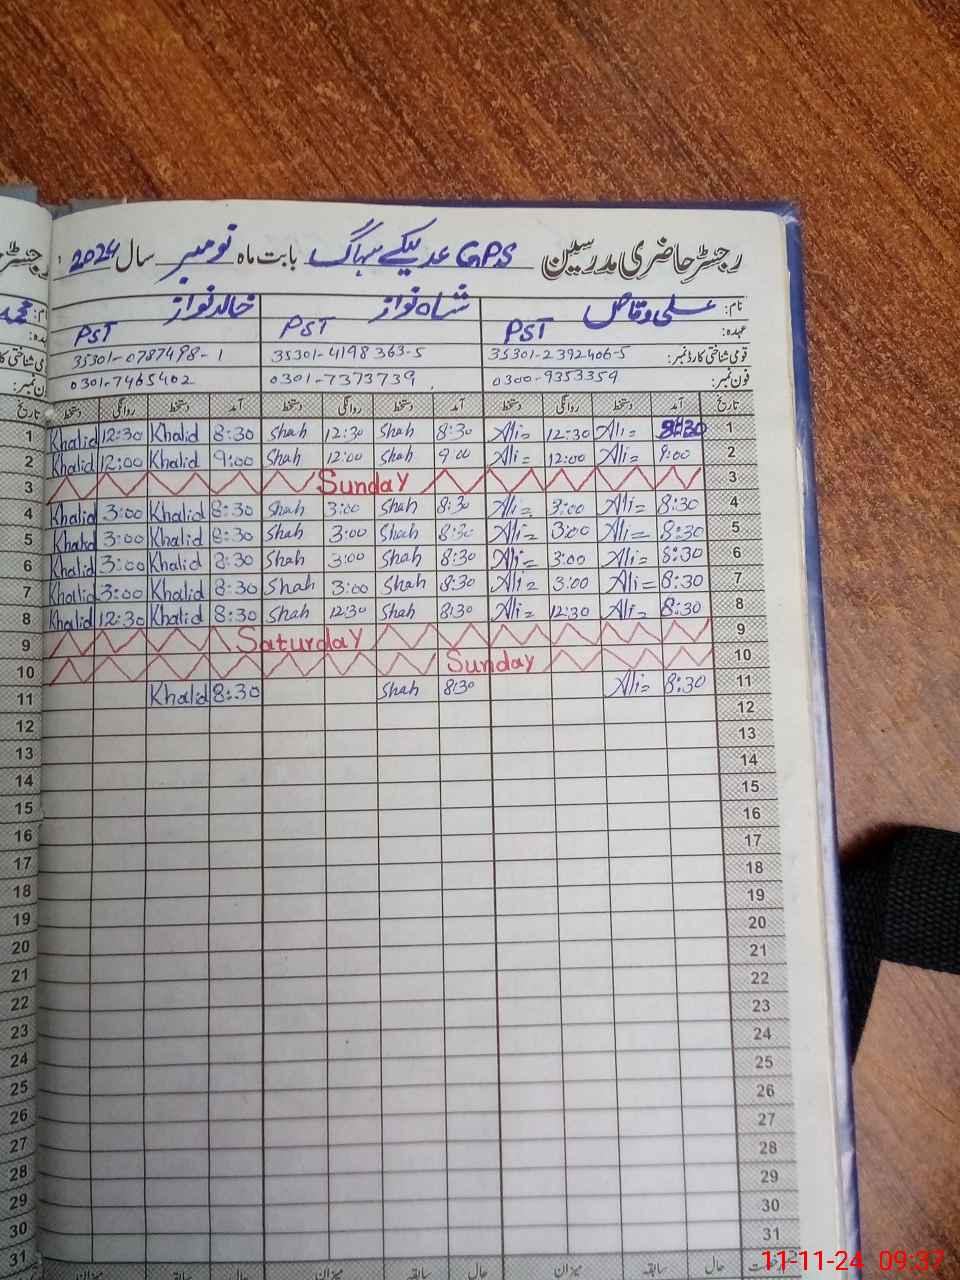 رجسٹر حاضری مدرسین GPS عدیکے سہاگ بابت ماہ نومبر سال 2024
نام: علی وقاص شاہ نواز خالد نواز
عہدہ: PST PST PST
قومی شناختی کارڈ نمبر: 35301-2392406-5 35301-4198363-5 35301-0787498-1
فون نمبر: 0300-9353359 0301-7373739 0301-7465402
تاریخ آمد دستخط روانگی دستخط آمد دستخط روانگی دستخط آمد دستخط روانگی دستخط تاریخ
1 Khalid 12:30 Khalid 8:30 Shah 12:30 Shah 8:30 Ali= 12:30 Ali= 8:30 1
2 Khalid 12:00 Khalid 9:00 Shah 12:00 Shah 9:00 Ali= 12:00 Ali= 9:00 2
3 Sunday 3
4 Khalid 3:00 Khalid 8:30 Shah 3:00 Shah 8:30 Ali= 3:00 Ali= 8:30 4
5 Khalid 3:00 Khalid 8:30 Shah 3:00 Shah 8:30 Ali= 3:00 Ali= 8:30 5
6 Khalid 3:00 Khalid 8:30 Shah 3:00 Shah 8:30 Ali= 3:00 Ali= 8:30 6
7 Khalid 3:00 Khalid 8:30 Shah 3:00 Shah 8:30 Ali= 3:00 Ali= 8:30 7
8 Khalid 12:30 Khalid 8:30 Shah 12:30 Shah 8:30 Ali= 12:30 Ali= 8:30 8
9 Saturday 9
10 Sunday 10
11 Khalid 8:30 Shah 8:30 Ali= 8:30 11
12 12
13 13
14 14
15 15
16 16
17 17
18 18
19 19
20 20
21 21
22 22
23 23
24 24
25 25
26 26
27 27
28 28
29 29
30 30
31 31
حال سابقہ میزان حال سابقہ میزان حال سابقہ میزان
11-11-24 09:37